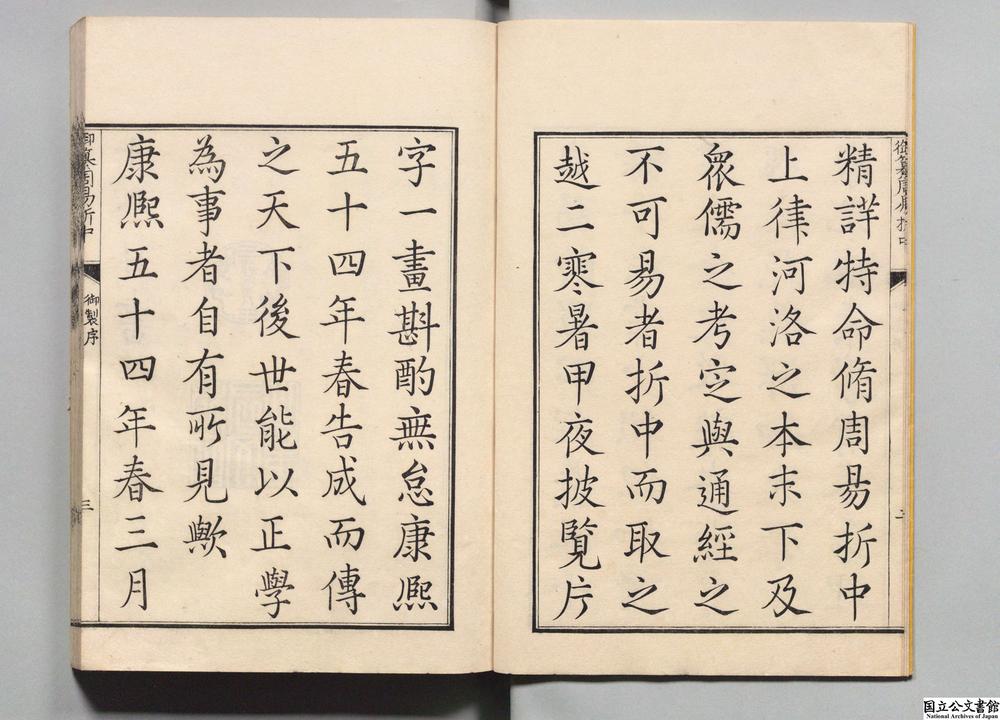 御纂周易折中
精詳特命脩周易折中
上律河洛之本末下及
眾儒之考定與通經之
不可易者折中而取之
越二寒暑甲夜披覽片
字一畫斟酌無怠康熈
五十四年春告成而傳
之天下後世能以正學
為事者自有所見歟
康熈五十四年春三月
御纂周易折中
御製序
三
国立公文書館
National Archives of Japan